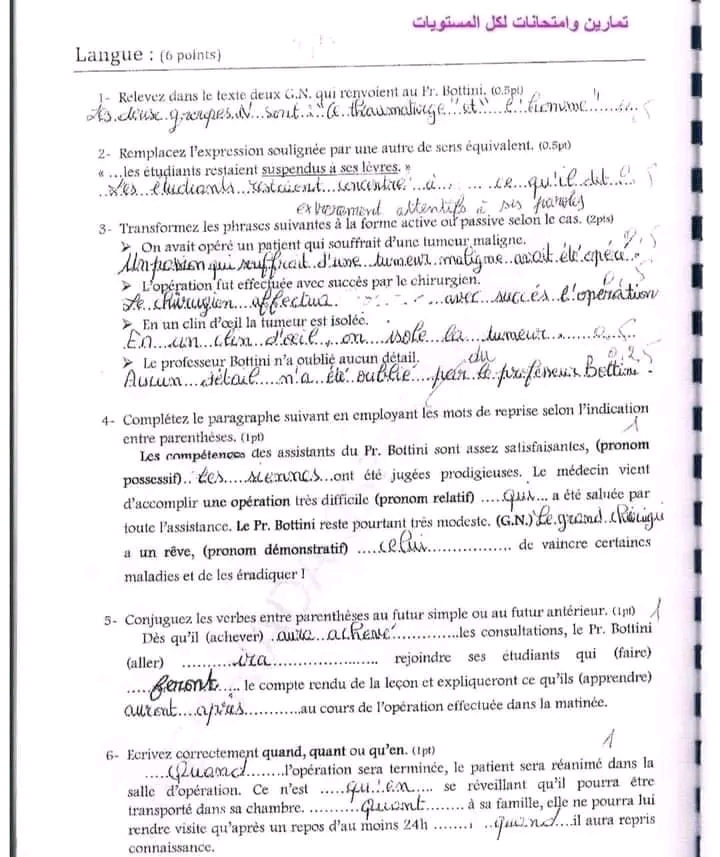 تمارين وامتحانات لكل المستويات
Langue : (6 points)
1- Relevez dans le texte deux G.N. qui renvoient au Pr. Bottini. (0.5pt)
Les deux groupes N sont : "Ce thaumaturge" et "l'homme"
2- Remplacez l'expression soulignée par une autre de sens équivalent. (0.5pt)
« ...les étudiants restaient suspendus à ses lèvres. »
Les étudiants restaient concentré à ce qu'il dit
attentifs à ses paroles
3- Transformez les phrases suivantes à la forme active ou passive selon le cas. (2pts)
➢ On avait opéré un patient qui souffrait d'une tumeur maligne.
qui souffrait d'une tumeur maligne avait été opéré
➢ L'opération fut effectuée avec succès par le chirurgien.
Le chirugien effectua avec succés l'opération
➢ En un clin d'œil la tumeur est isolée.
En un clin d'œil, on isole la tumeur 0,5
➢ Le professeur Bottini n'a oublié aucun détail.
du 0,25
Aucun détail n'a été oublié par le professeur Bottini.
4- Complétez le paragraphe suivant en employant les mots de reprise selon l'indication
entre parenthèses. (1pt) 1
Les compétences des assistants du Pr. Bottini sont assez satisfaisantes, (pronom
possessif).. Les siennes...ont été jugées prodigieuses. Le médecin vient
d'accomplir une opération très difficile (pronom relatif) ....qui... a été saluée par
toute l'assistance. Le Pr. Bottini reste pourtant très modeste. (G.N.) Le grand
a un rêve, (pronom démonstratif) ....celui................ de vaincre certaines
maladies et de les éradiquer !
5- Conjuguez les verbes entre parenthèses au futur simple ou au futur antérieur. (1pt) 1
Dès qu'il (achever) .aura achevé............les consultations, le Pr. Bottini
(aller) ...........ira..................... rejoindre ses étudiants qui (faire)
.....feront..... le compte rendu de la leçon et expliqueront ce qu'ils (apprendre)
auront...apris............au cours de l'opération effectuée dans la matinée.
6- Ecrivez correctement quand, quant ou qu'en. (1pt) 1
....Quand........l'opération sera terminée, le patient sera réanimé dans la
salle d'opération. Ce n'est .....qu'en.... se réveillant qu'il pourra être
transporté dans sa chambre. .........Quant........ à sa famille, elle ne pourra lui
rendre visite qu'après un repos d'au moins 24h ........ ..quand...il aura repris
connaissance.